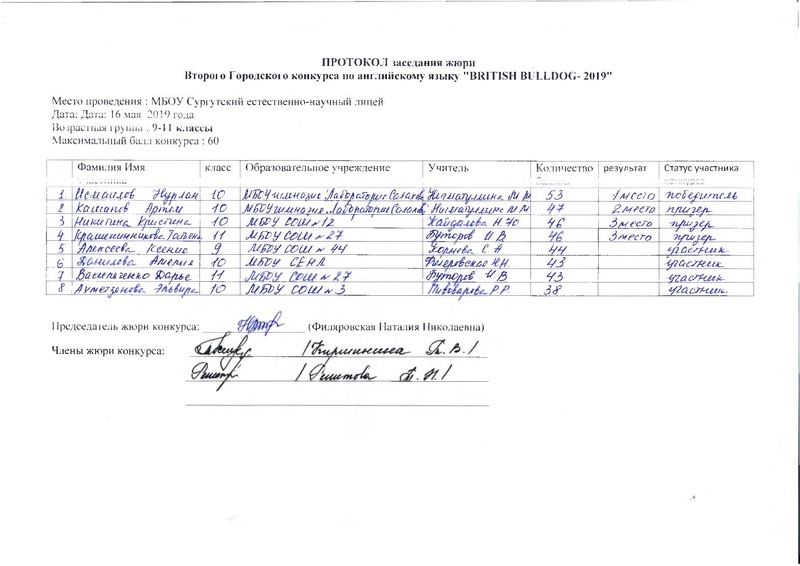 ПРОТОКОЛ заседания жюри
Второго Городского конкурса по английскому языку "BRITISH BULLDOG- 2019"
Место проведения : МБОУ Сургутский естественно-научный лицей
Дата: Дата: 16 мая 2019 года
Возрастная группа : 9-11 классы
Максимальный балл конкурса : 60
Фамилия Имя класс Образовательное учреждение Учитель Количество результат Статус участника
конкурса
1 Исмаилов Нурлан 10 МБОУ гимназия "Лаборатория Салахова" Нигматуллина М М 53 1 место победитель
2 Артем 10 МБОУ гимназия "Лаборатория Салахова" Нигматуллина М М 47 2 место призер
3 Никитина Кристина 10 МБОУ СОШ №12 Хайдалова Н.Ю 46 3 место призер
4 Крашенинникова Татьяна 11 МБОУ СОШ №27 Буторов И В 46 3 место призер
5 Алексеева Ксения 9 МБОУ СОШ №44 Корнева С А 44 участник
6 Данилова Амелия 10 МБОУ СЕНЛ Филяровская Н.Н. 43 участник
7 Васильченко Дарья 11 МБОУ СОШ №27 Буторов И В 43 участник
8 Ахметзянова Эльвира 10 МБОУ СОШ №3 Пивоварова Р.Р. 38 участник
Председатель жюри конкурса: (Филяровская Наталия Николаевна)
Члены жюри конкурса: / Т. В. /
/ Решитова Т. И. /